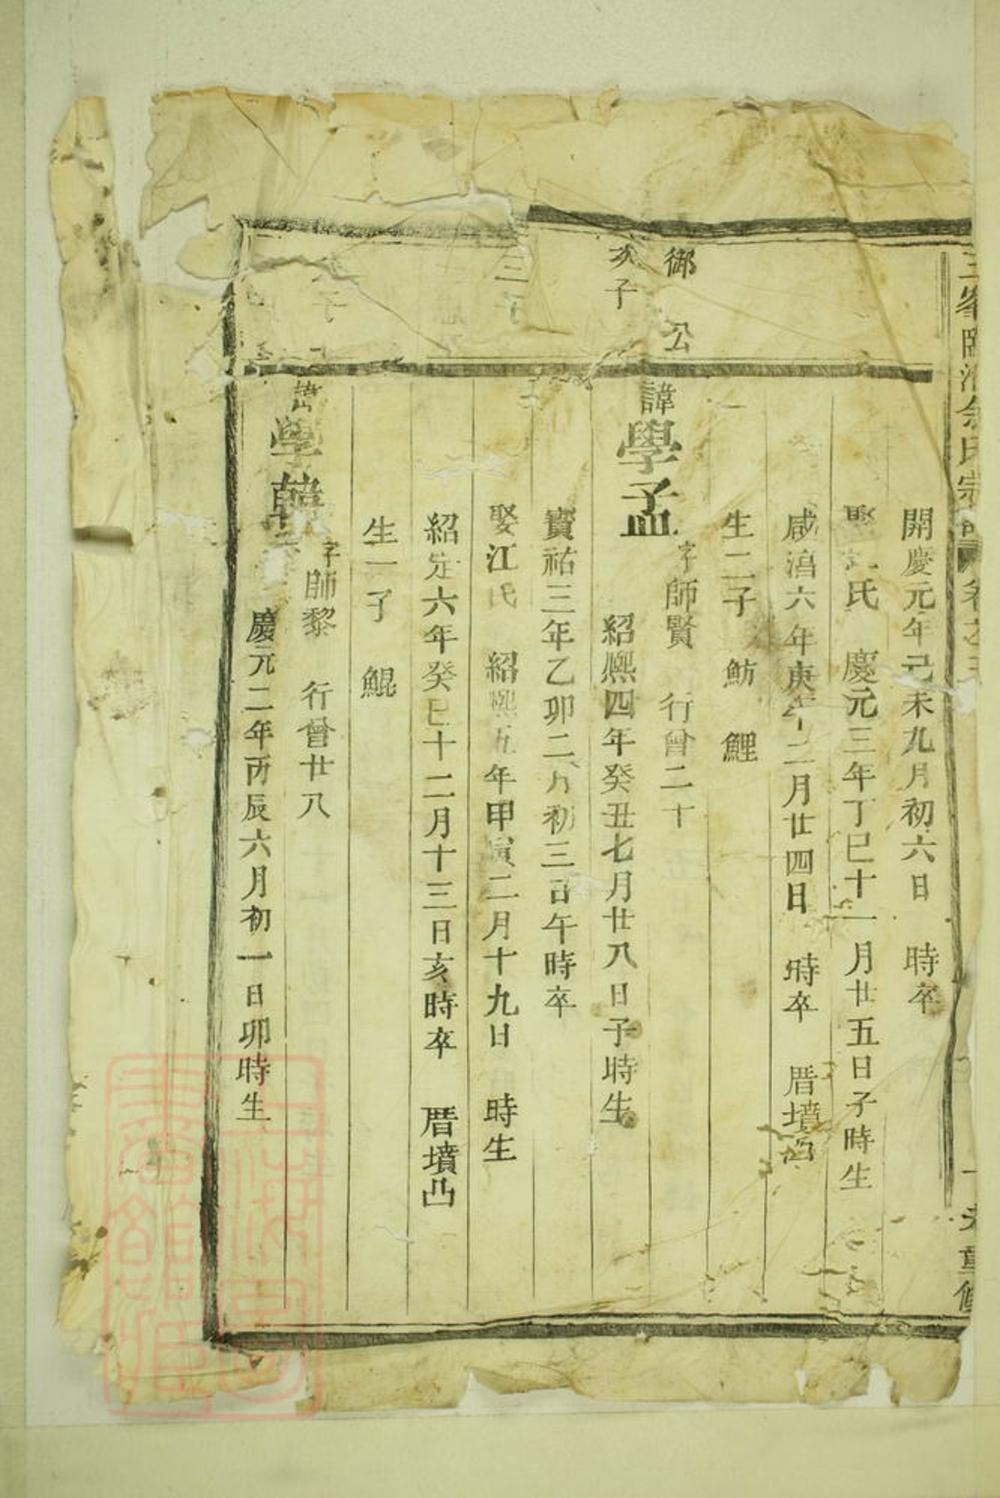 余氏宗
開慶元年己未九月初六日　時卒
娶　氏　慶元三年丁巳十一月廿五日子時生
咸淳六年庚午二月廿四日　時卒　厝墳凸
生二子　魴　鯉
御公
次子
諱學孟　字師賢　行曾二十
紹熙四年癸丑七月廿八日子時生
寳祐三年乙卯二月初三日午時卒
三子
娶江氏　紹熙五年甲寅二月十九日　時生
紹定六年癸巳十二月十三日亥時卒　厝墳凸
生一子　鯤
諱學韓　字師黎　行曾廿八
慶元二年丙辰六月初一日卯時生